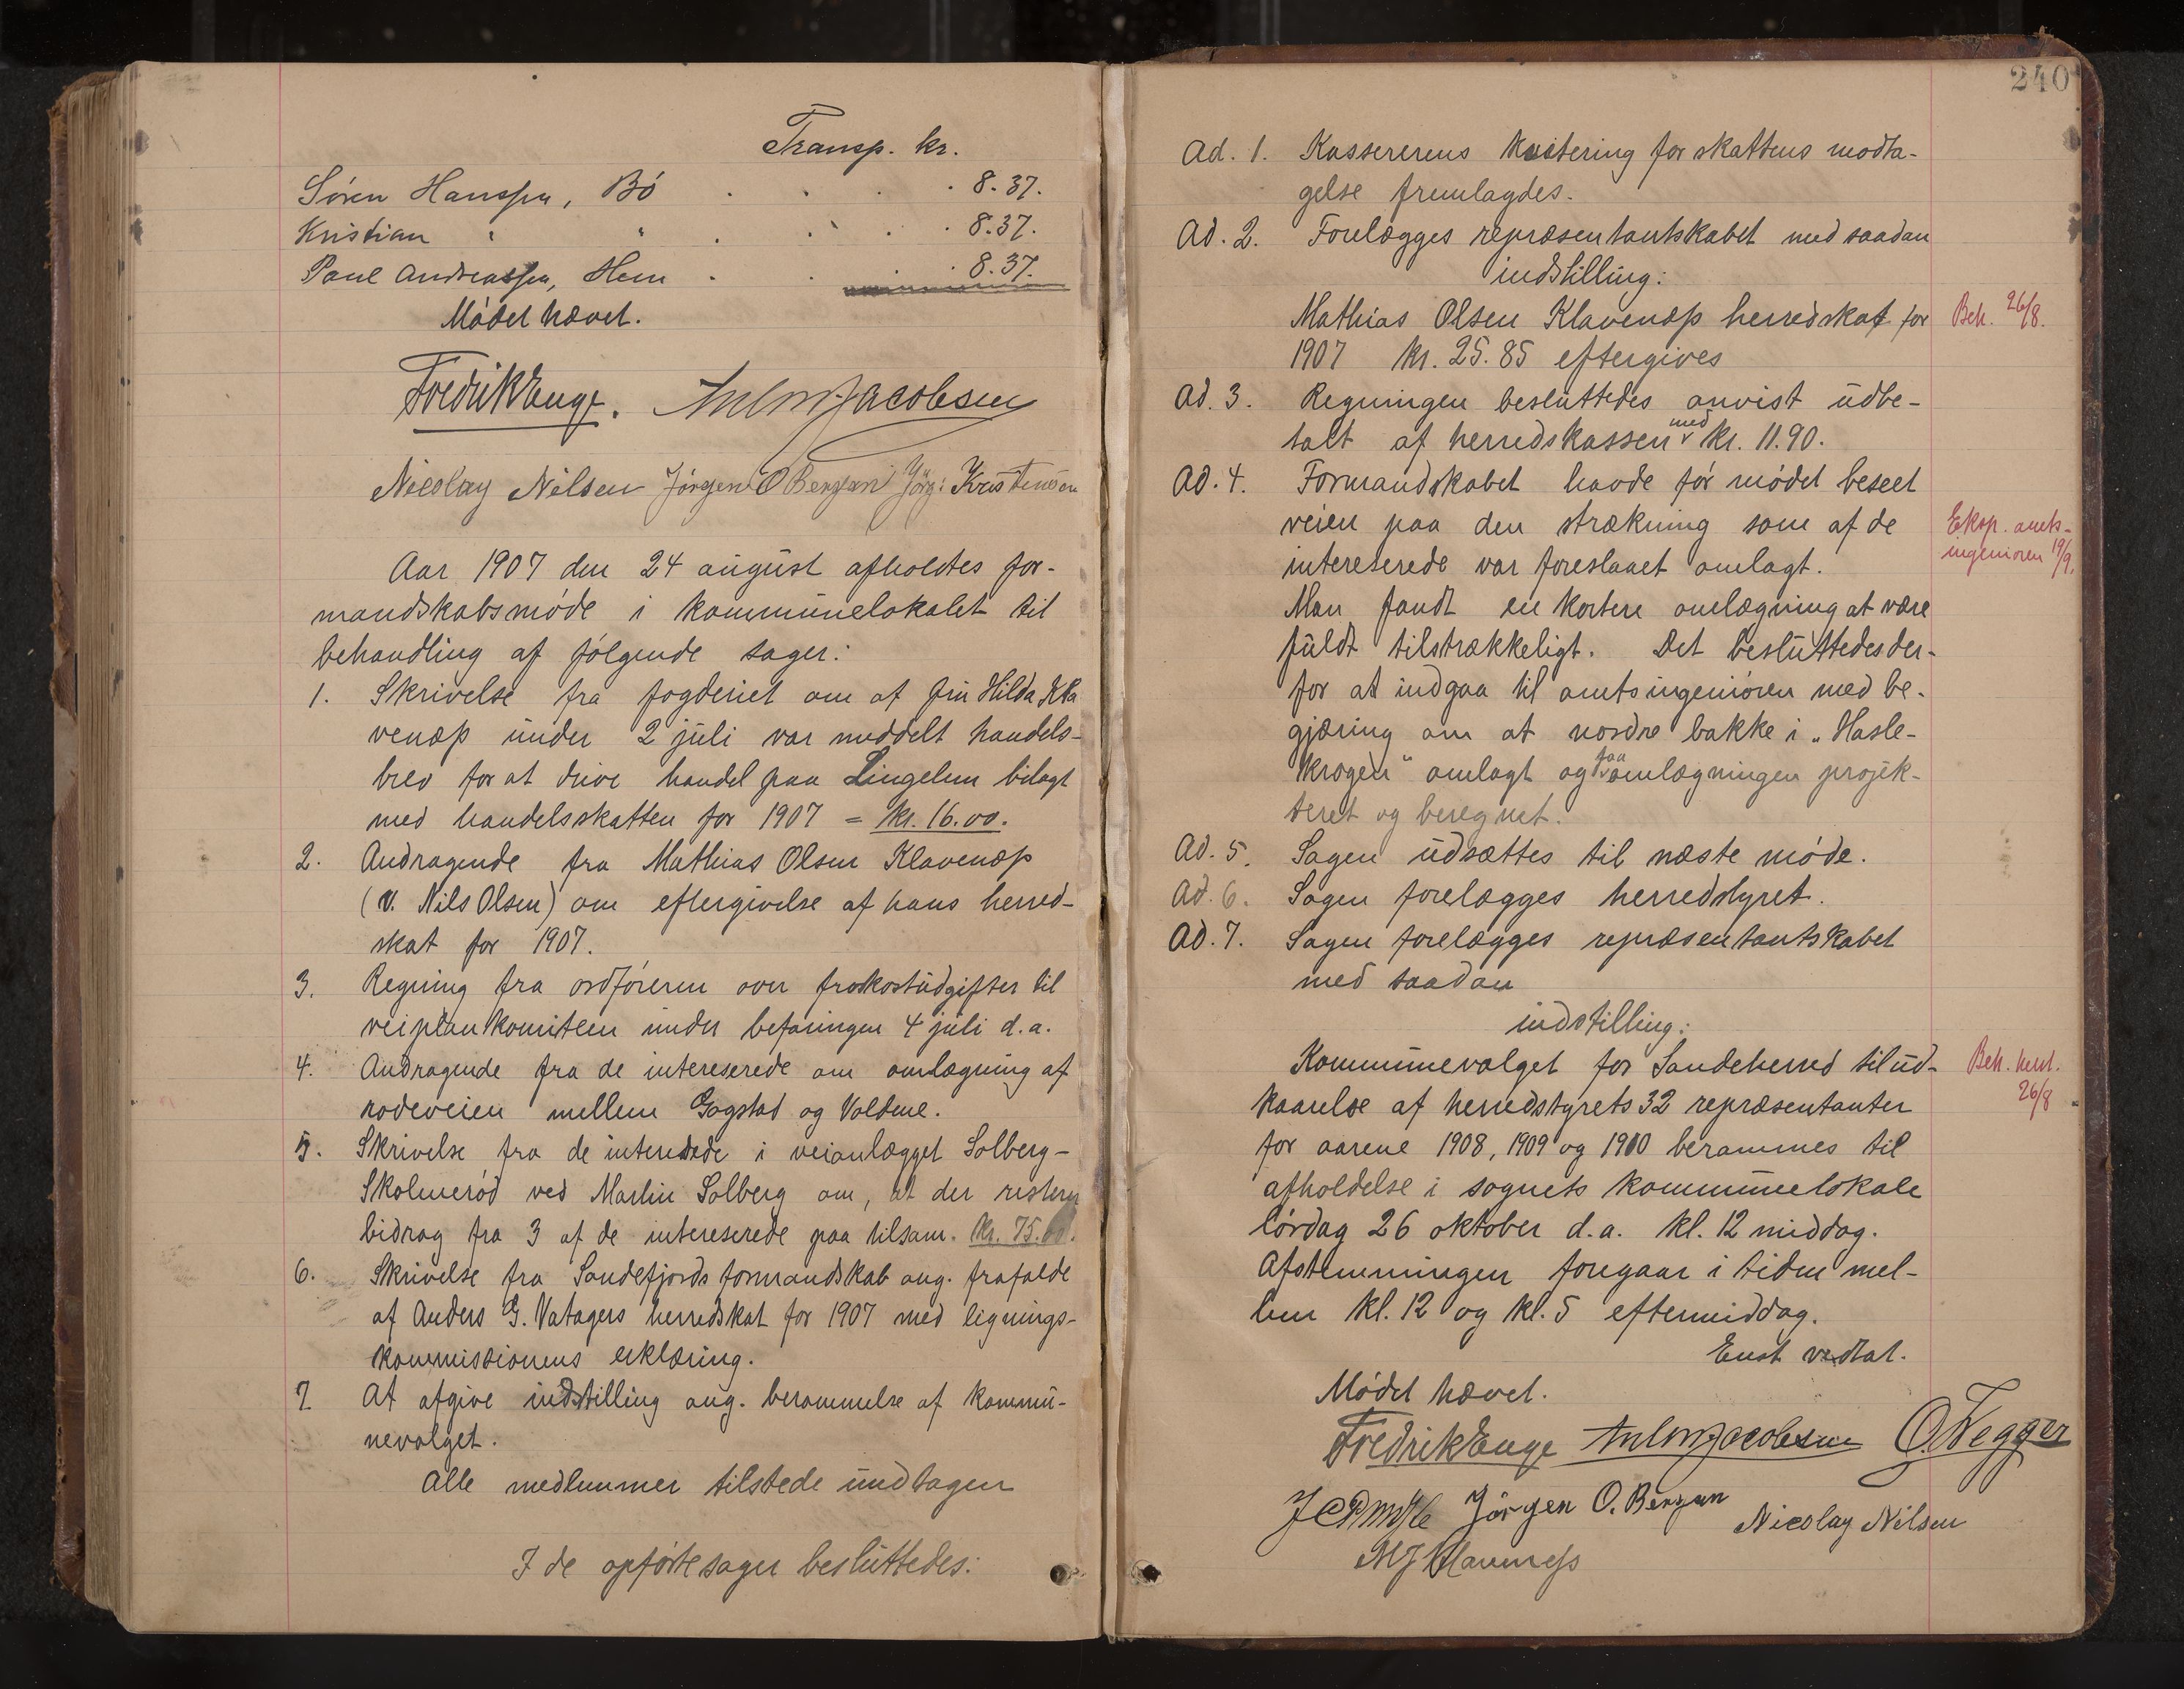 Transp. kr.
Sören Hanssen, Bö . . . . 8.37.
Kristian " " . . . . 8.37.
Paul Andreassen, Hem . . . 8.37.
Mödet hævet.
Fredrik Enge. Anton Jacobsen
Nicolay Nilsen Jörgen O Bergan Jörg: Kristensen
Aar 1907 den 24 august afholdtes for-
mandskabsmöde i kommunelokalet til
behandling af fölgende sager:
1. Skrivelse fra fogderiet om at fru Hilda Kla
venæs under 2 juli var meddelt handels-
brev for at drive handel paa Lingelem bilagt
med handelsskatten for 1907 = kr. 16.00.
2. Andragende fra Mathias Olsen Klavenæs
(v. Nils Olsen) om eftergivelse af hans herred-
skat for 1907.
3. Regning fra ordföreren over frokostudgifter til
veiplankomiteen under befaringen 4 juli d.a.
4. Andragende fra de intereserede om omlægning af
rodeveien mellem Gogstad og Voldene.
5. Skrivelse fra de interesede i veianlægget Solberg-
Skolmeröd ved Martin Solberg om, at der resterer
bidrag fra 3 af de intereserede paa tilsam. kr. 75.00.
6. Skrivelse fra Sandefjords formandskab ang. frafalde
af Anders G. Vatagers herredskat for 1907 med lignings-
kommissionens erklæring.
7. At afgive indstilling ang. berammelse af kommu-
nevalget.
Alle medlemmer tilstede undtagen
I de opförte sager besluttedes:
240
Ad. 1. Kassererens kvittering for skattens modta-
gelse fremlagdes.
Ad. 2. Forelægges repræsentantskabet med saadan
indstilling:
Mathias Olsen Klavenæs herredskat for
Beh. 26/8.
1907 kr. 25.85 eftergives
Ad. 3. Regningen besluttedes anvist udbe-
talt af herredskassen med kr. 11.90.
Ad. 4. Formandskabet havde för mödet beseet
veien paa den strækning som af de
Eksp. amts-
ingeniören 19/9.
intereserede var foreslaaet omlagt.
Man fandt en kortere omlægning at være
fuldt tilstrækkeligt. Det besluttedes der-
for at indgaa til amtsingeniören med be-
gjæring om at nordre bakke i "Hasle-
krogen" omlagt og faa omlægningen projek-
teret og beregnet.
Ad. 5. Sagen udsættes til næste möde.
Ad. 6. Sagen forelægges herredstyret.
Ad. 7. Sagen forelægges repræsentantskabet
med saadan
indstilling:
Kommunevalget for Sandeherred til ud-
Beh. herst.
26/8
kaarelse af herredstyrets 32 repræsentanter
for aarene 1908, 1909 og 1910 berammes til
afholdelse i sognets kommunelokale
lördag 26 oktober d.a. kl. 12 middag.
Afstemningen foregaar i tiden mel-
lem kl. 12 og kl. 5 eftermiddag.
Enst vedtat.
Mödet hævet.
Fredrik Enge Anton Jacobsen O. Vegger
Jörgen O. Bergan Nicolay Nilsen